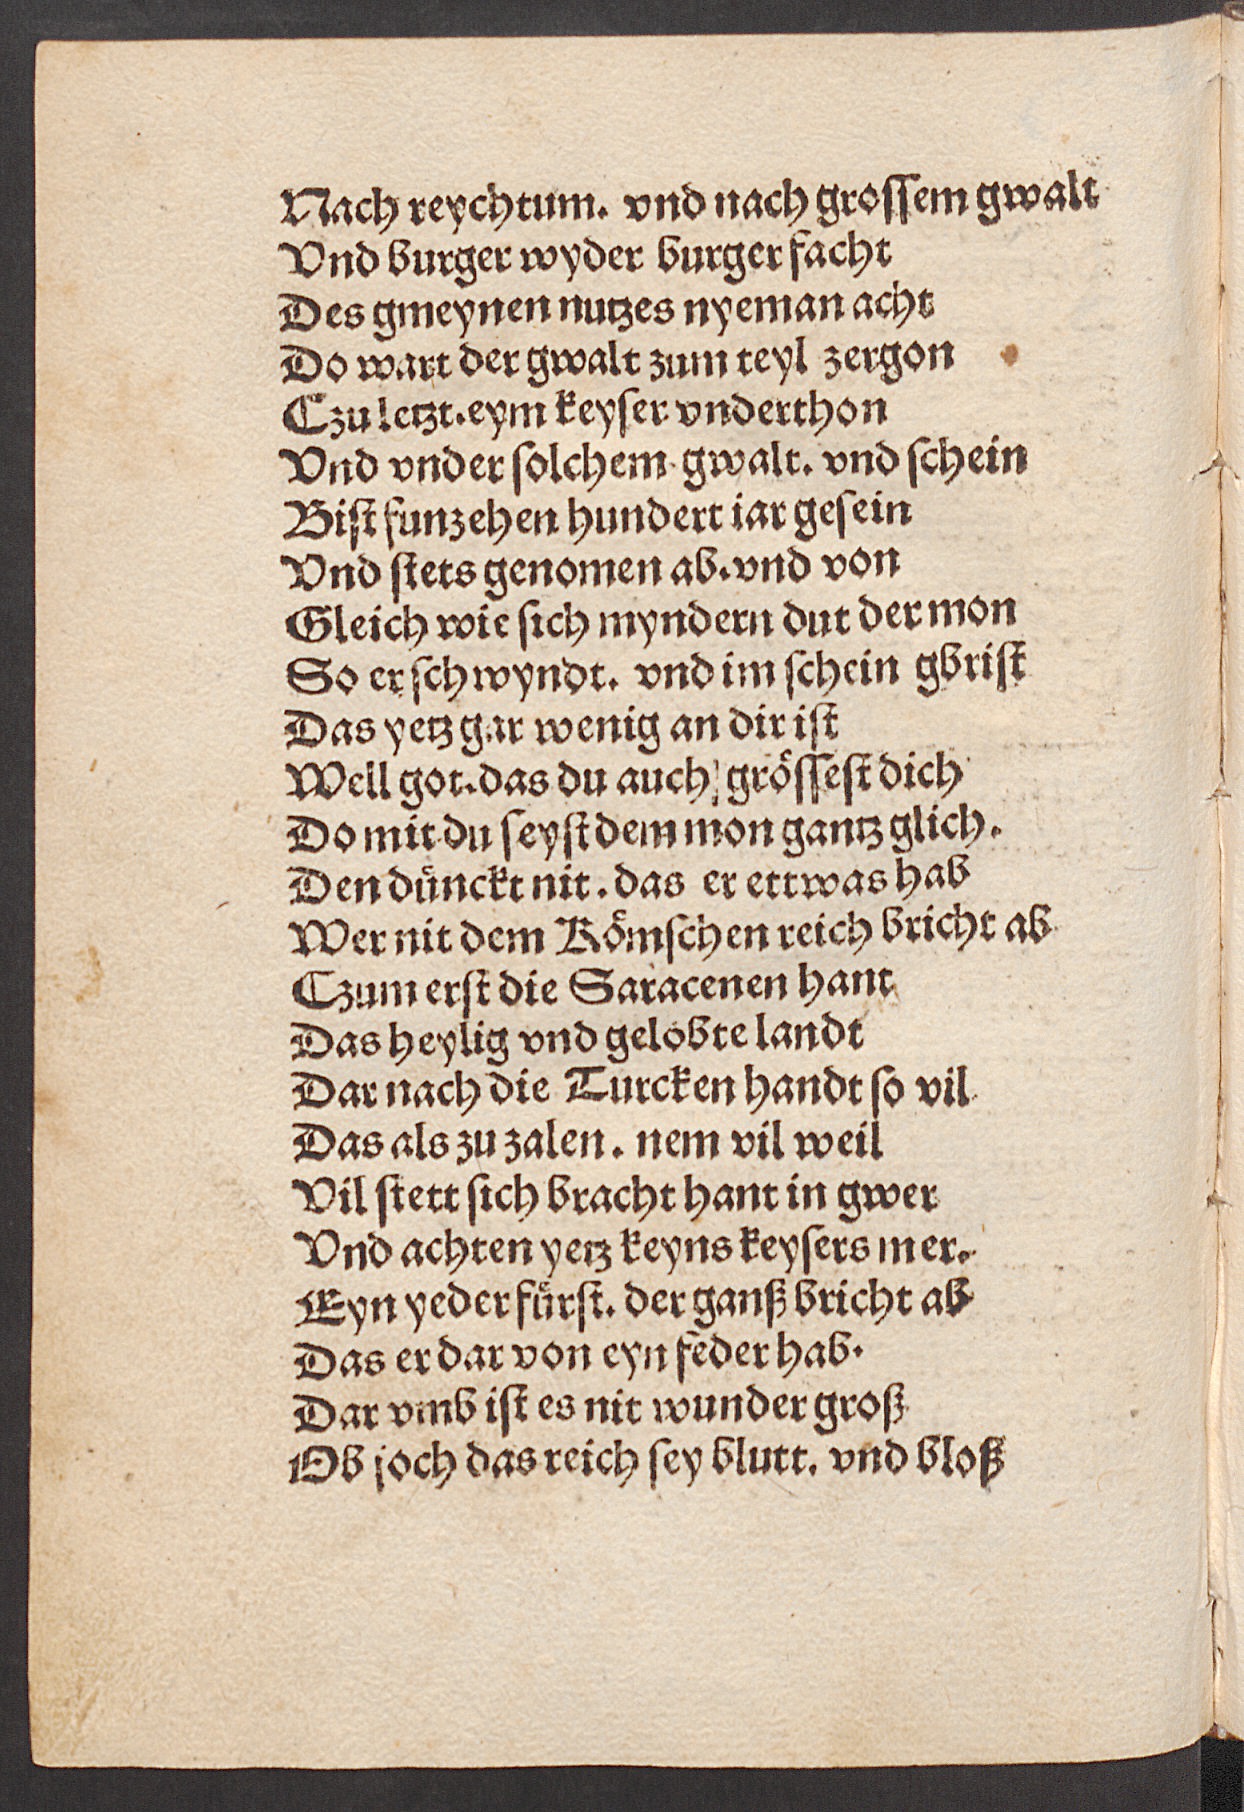 Nach reychtum. vnd nach grossem gwalt
Vnd burger wyder burger facht
Des gmeynen nutzes nyeman acht
Do wart der gwalt zum teyl zergon
Czu letzt. eym keyser vnderthon
Vnd vnder solchem gwalt. vnd schein
Bist funzehen hundert iar gesein
Vnd stets genomen ab. vnd von
Gleich wie sich myndern dut der mon
So er schwyndt. vnd im schein gbrist
Das yetz gar wenig an dir ist
Well got. das du auch grössest dich
Do mit du seyst dem mon gantz glich.
Den dünckt nit. das er ettwas hab
Wer nit dem Römschen reich bricht ab
Czum erst die Saracenen hant
Das heylig vnd gelobte landt
Dar nach die Turcken handt so vil
Das als zu zalen. nem vil weil
Vil stett sich bracht hant in gwer
Vnd achten yetz keyns keysers mer.
Eyn yeder fürst. der ganß bricht ab
Das er dar von eyn feder hab.
Dar vmb ist es nit wunder groß
Ob joch das reich sey blutt. vnd bloß